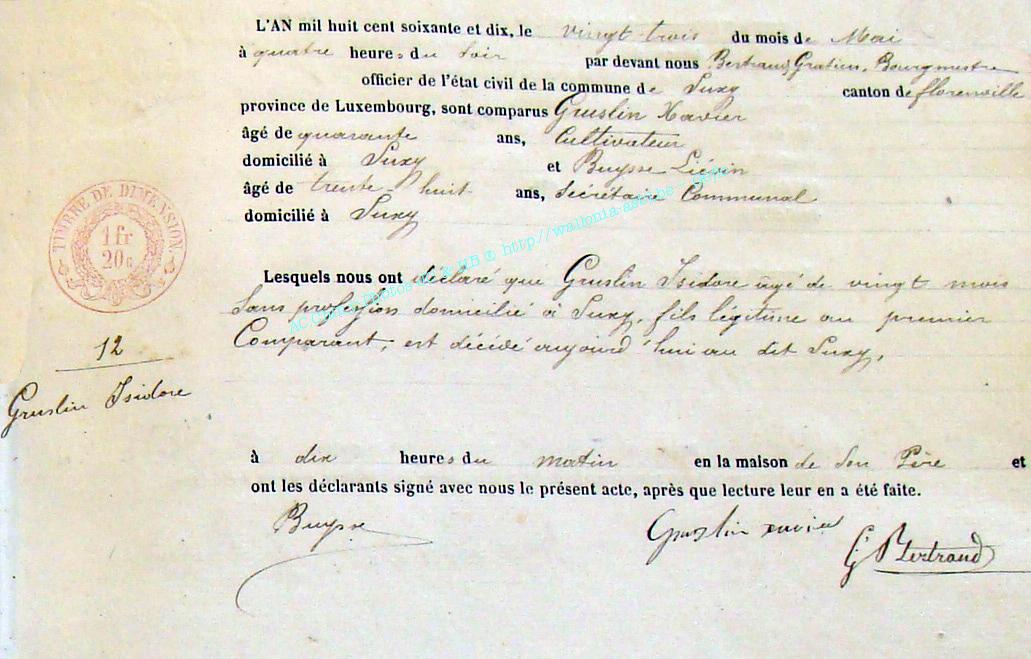 L'AN mil huit cent soixante et dix, le vingt trois du mois de Mai
à quatre heures du soir par devant nous Bertrand Gratien, Bourgmestre
officier de l'état civil de la commune de Suxy canton de florenville
province de Luxembourg, sont comparus Gruslin Xavier
âgé de quarante ans, Cultivateur
domicilié à Suxy et Buysse Liévin
âgé de trente-huit ans, Secrétaire Communal
domicilié à Suxy
TIMBRE DE DIMENSION
1 fr
20 c
Lesquels nous ont déclaré que Gruslin Isidore âgé de vingt mois
sans profession domicilié à Suxy, fils légitime au premier
Comparant, est décédé aujourd'hui au dit Suxy,
12
Gruslin Isidore
à dix heures du matin en la maison de son Père et
ont les déclarants signé avec nous le présent acte, après que lecture leur en a été faite.
Buysse
Gruslin xavier
G Bertrand
http://wallonia-asbl.be